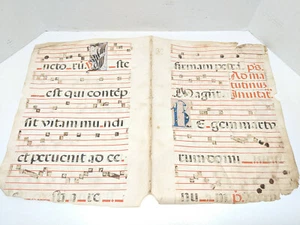 nctorũ. Iste
est qui contẽp
sit vitam mundi
et peruenit ad ce
firmam petrã. p̃s.
Ad ma
tutinus
Inuitat
REgem marty
rum domi
nu m